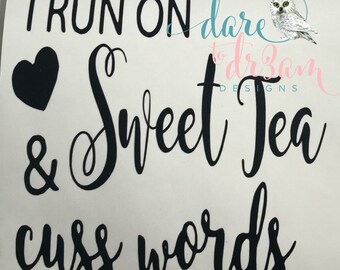 I RUN ON
Sweet Tea
& cuss words
dare
to dr3am
DESIGNS